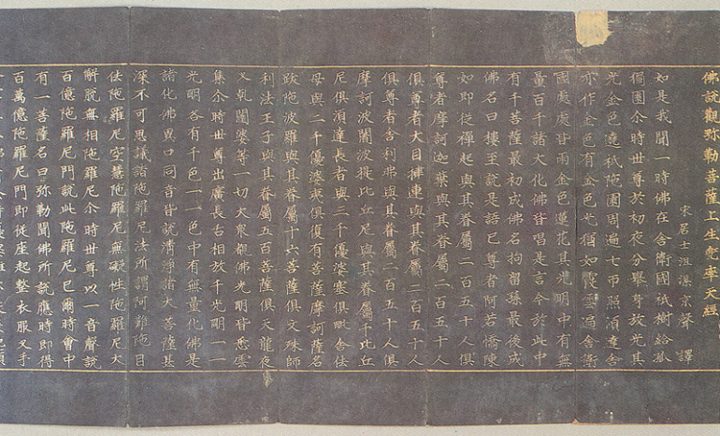 佛說觀弥勒菩薩上生兜率天經
宋居士沮渠京聲 譯
如是我聞一時佛在舍衛國祇樹給孤
獨園尒時世尊於初夜分舉身放光其
光金色遶祇陁園周遍七帀照須達舍
亦作金色有金色光猶如霞雲遍舍衛
國處處皆雨金色蓮花其光明中有無
量百千諸大化佛皆唱是言今於此中
有千菩薩最初成佛名拘留孫最後成
佛名曰樓至說是語已尊者阿若憍陳
如即從禪起與其眷屬二百五十人俱
尊者摩訶迦葉與其眷屬二百五十人
俱尊者大目揵連與其眷屬二百五十人
俱尊者舍利弗與其眷屬二百五十人俱
摩訶波闍波提比丘尼與其眷屬千比丘
尼俱須達長者與三千優婆塞俱毗舍佉
母與二千優婆夷俱復有菩薩摩訶薩名
跋陁波羅與其眷屬十六菩薩俱文殊師
利法王子與其眷屬五百菩薩俱天龍夜
叉乹闥婆等一切大衆覩佛光明皆悉雲
集尒時世尊出廣長舌相放千光明一一
光明各有千色一一色中有無量化佛是
諸化佛異口同音皆說清淨諸大菩薩甚
深不可思議諸陁羅尼法所謂阿難陁目
佉陁羅尼空慧陁羅尼無礙性陁羅尼大
解脫無相陁羅尼尒時世尊以一音聲說
百億陁羅尼門說此陁羅尼已爾時會中
有一菩薩名曰弥勒聞佛所說應時即得
百萬億陁羅尼門即從座起整衣服叉手